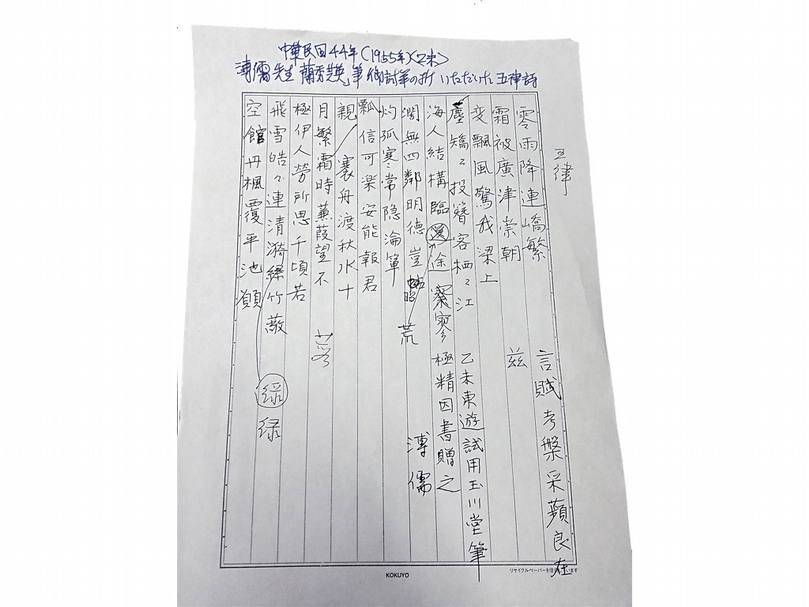 中華民国44年(1955年)(乙未)
溥儒先生 蘭秀芝英筆 御試筆の折 いただいた 五律詩
五律
零雨降連嶠繁
霜被廣津崇朝
変飄風驚我梁上
塵矯々投簪客栖々江
海人結構臨 途寥寥
濶無四鄰明德豈 昭 荒
灼孤寒常隐淪簞
瓢信可楽安能報君
親 褰丹渡秋水十
月繁霜時蒹葭望不
極伊人勞所思千頃若
飛雪皓々連清漪緑竹蔽
空館丹楓覆平池顔
言賦考槃采蘋良在
茲
乙未東遊試用玉川堂筆
極精因書贈之
溥儒
緑
KOKUYO
リサイクルペーパーを使用しています